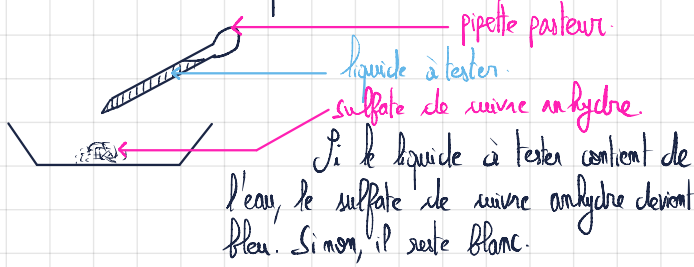 pipette pasteur.
liquide à tester.
sulfate de cuivre anhydre.
Si le liquide à tester contient de
l'eau, le sulfate de cuivre anhydre devient
bleu. Sinon, il reste blanc.